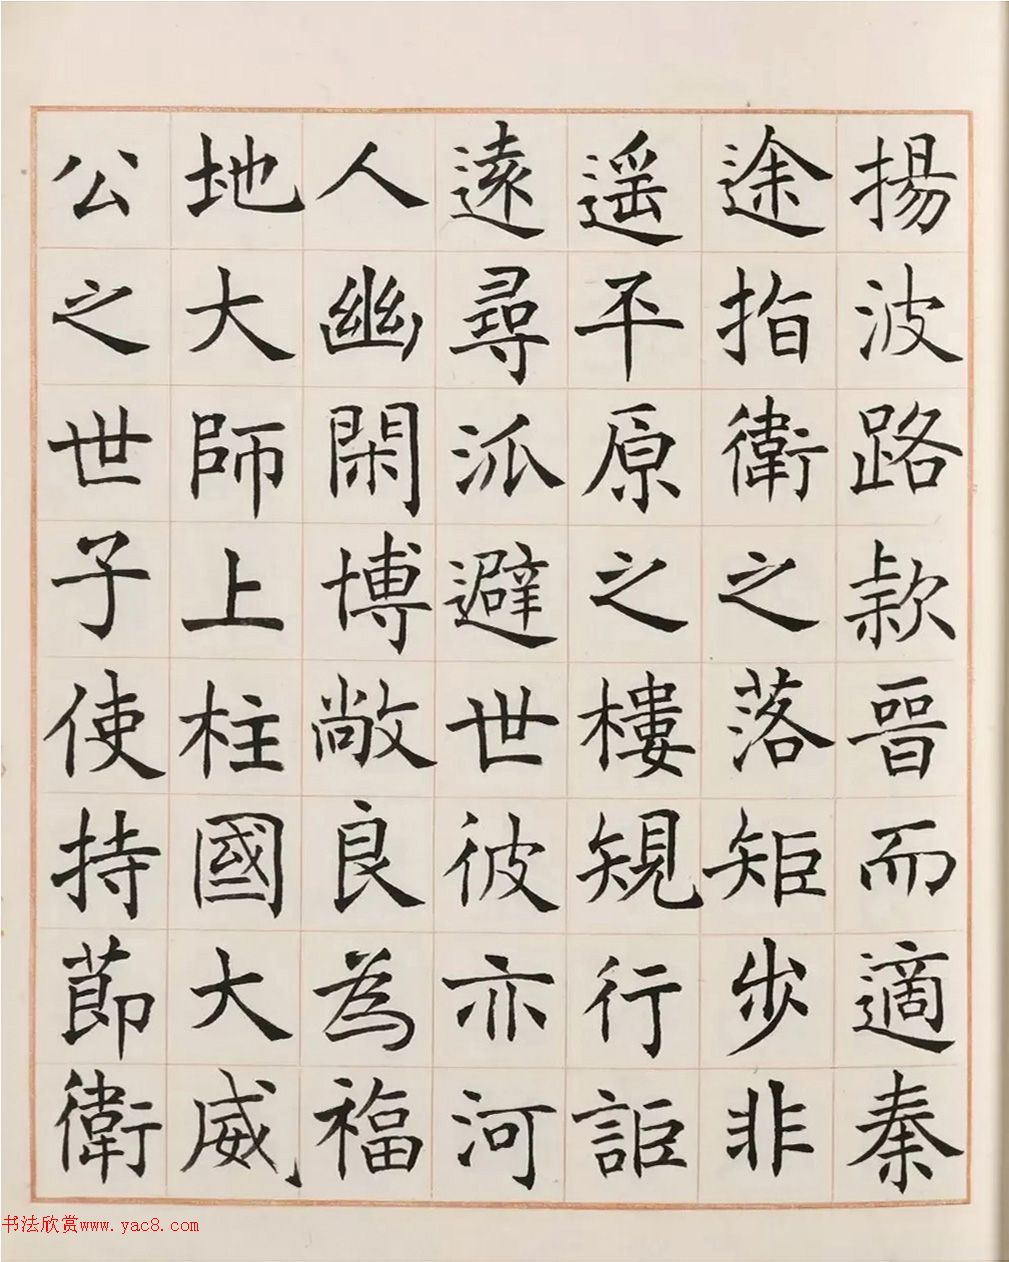 揚波路款晉而適秦
途指衛之落矩步非
遥平原之樓規行詎
遠尋派避世彼亦河
人幽閑博敞良為福
地大師上柱國大威
公之世子使持節衛
书法欣赏www.yac8.com